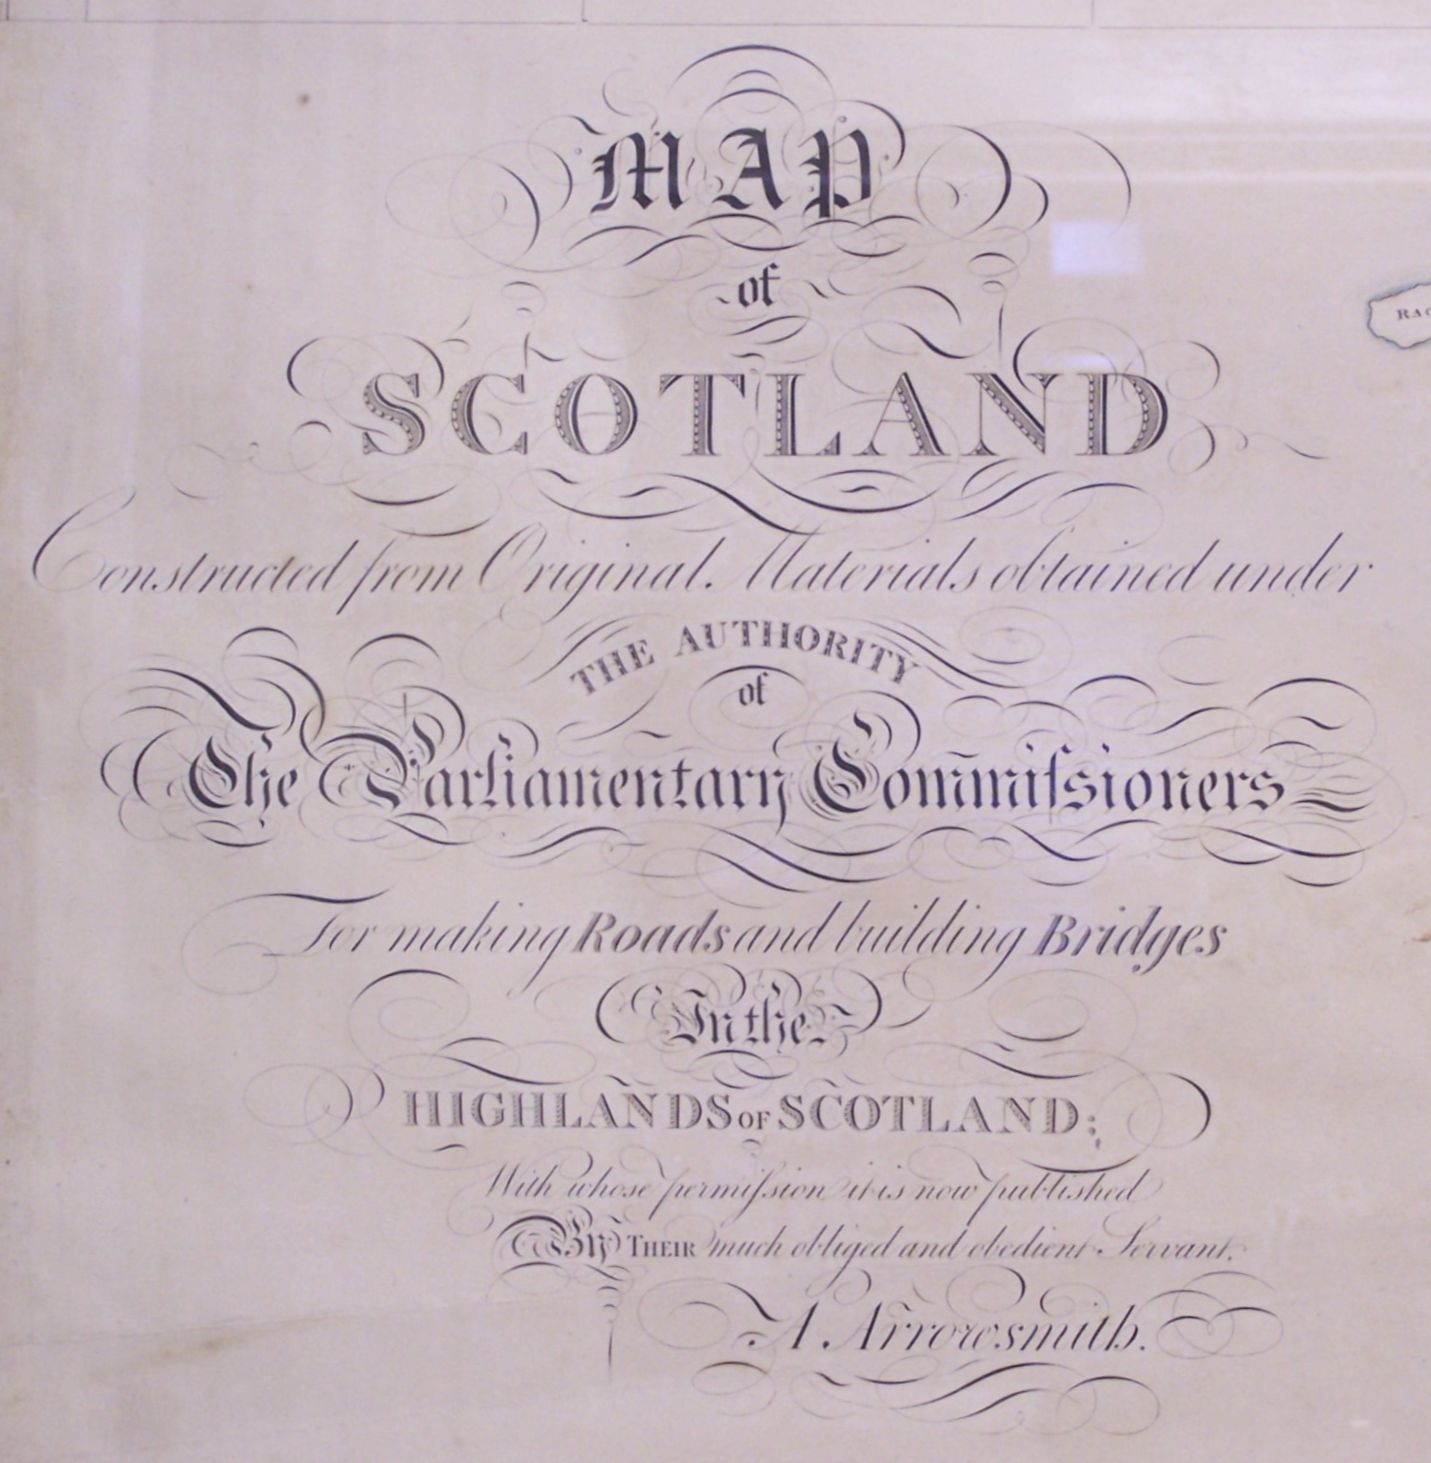 MAP
of
SCOTLAND
Constructed from Original Materials obtained under
THE AUTHORITY
of
The Parliamentary Commiſsioners
For making Roads and building Bridges
In the
HIGHLANDS OF SCOTLAND;
With whose permiſsion it is now published
By THEIR much obliged and obedient Servant.
A. Arrowsmith.
RAC